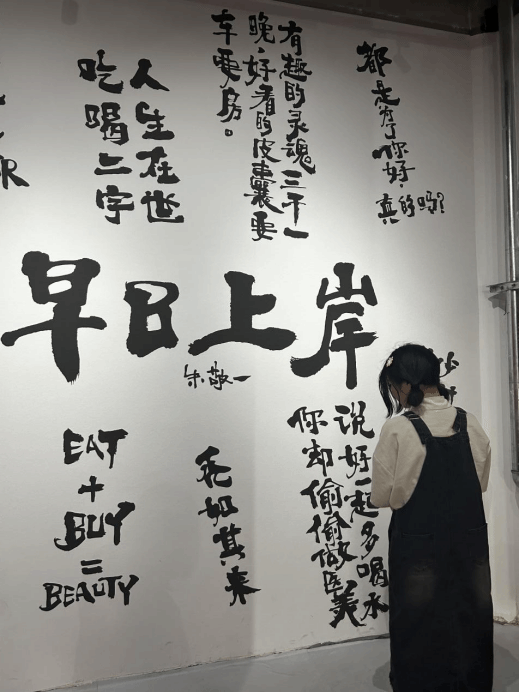 人生在世
吃喝二字
有趣的灵魂三千一
晚，好看的皮囊要
车要房。
都是为了你好，
真的吗？
早日上岸
朱敬一
EAT
+
BUY
=
BEAUTY
秃如其来
说好一起多喝水
你却偷偷做医美